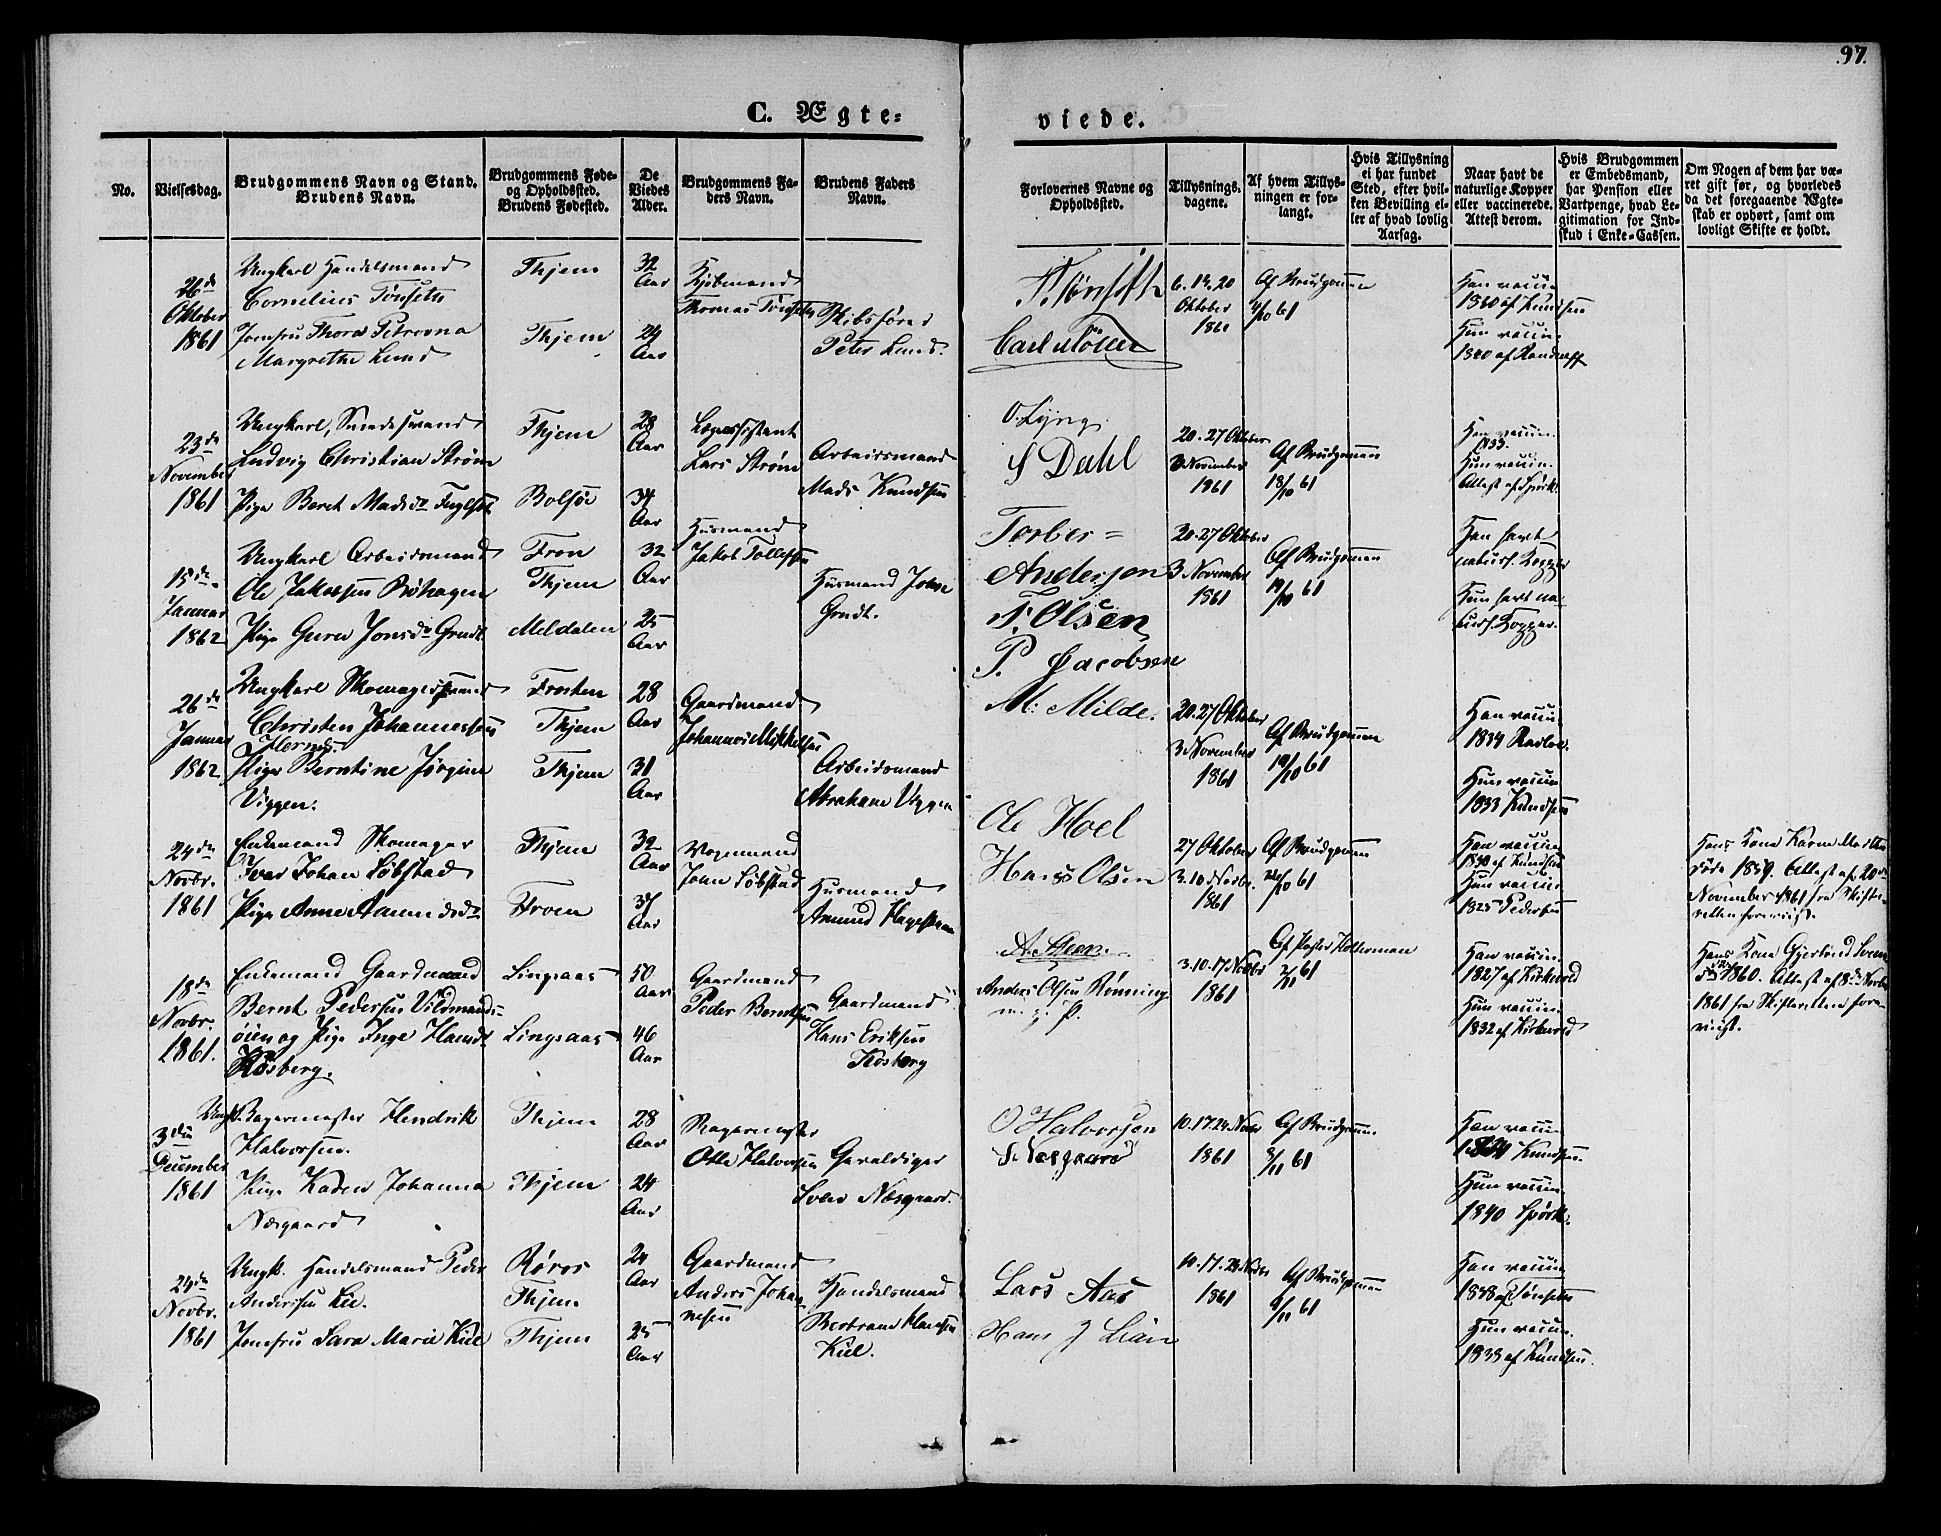 97.
C. Ægte-
viede.
No.
Vielsesdag.
Brudgommens Navn og Stand.
Brudens Navn.
Brudgommens Føde-
og Opholdssted.
Brudens Fødested.
De
Viedes
Alder.
Brudgommens Fa-
ders Navn.
Brudens Faders
Navn.
Forlovernes Navne og
Opholdssted.
Tillysnings-
dagene.
Af hvem Tillys-
ningen er for-
langt.
Hvis Tillysning
ei har fundet
Sted, efter hvil-
ken Bevilling el-
ler af hvad lovlig
Aarsag.
Naar havt de
naturlige Kopper
eller vaccinerede.
Attest derom.
Hvis Brudgommen
er Embedsmand,
har Pension eller
Vartpenge, hvad Le-
gitimation for Ind-
skud i Enke-Cassen.
Om Nogen af dem har væ-
ret gift før, og hvorledes
da det foregaaende Ægte-
skab er ophørt, samt om
lovligt Skifte er holdt.
26de
Oktober
1861
Ungkarl Handelsmand
Cornelius Tønseth
Jomfru Thora Petrovna
Margrethe Lund
Thjem
Thjem
32
Aar
24
Aar
Kjøbmand
Thomas Tønseth
Skibsfører
Peter Lund.
T. Tønseth
Carl
6. 13. 20
Oktober
1861
Af Brudgommen
/10 61
Han vaccin.
1830 af Knudsen
Hun vaccin.
1840 af
23de
November
1861
Ungkarl, Smedesvend
Ludvig Christian Strøm
Pige Beret Madsdr
Thjem
Bolsø
28
Aar
34
Aar
Lars Strøm
Arbeidsmand
Mads Knudsen
O. Lyng
S Dahl
20. 27 Oktober
3 November
1861
Af Brudgommen
18/10 61
Han vaccin.
1833.
Hun vaccin.
Attest af
15de
Januar
1862
Ungkarl Arbeidsmand
Ole Jakobsen Bøhagen
Pige Guru Jonsdr Grudt
Fron
Thjem
Meldalen
32
Aar
25
Aar
Husmand
Jakob Tollefsen
Husmand John
Grudt.
Torber=
Anderson
T. Olsen
P. Jacobsen
20. 27 Oktober
3 November
1861
Af Brudgommen
19/10 61
Han havt
naturl. Kopper
Hun havt na-
turl. Kopper.
26de
Januar
1862
Ungkarl Skomagersvend
Christen Johannessen
Pige Berntine Jørgine
Viggen.
Frosten
Thjem
Thjem
28
Aar
31
Aar
Gaardmand
Johannes Mikkelsen
Arbeidsmand
Abraham Viggen
M. Milde.
Ole Hoel
20. 27 Oktober
3 November
1861
Af Brudgommen
19/10 61
Han vaccin.
1834
Hun vaccin.
1833 Knudsen
24de
Novbr.
1861
Enkemand Skomager
Iver Johan Løbstad
Pige Anne Amundsdr
Thjem
Froen
32
Aar
37
Aar
Vognmand
John Løbstad
Husmand
Amund Hagestuen
Hans Olsen
27 Oktober
3. 10 Novbr.
1861
Af Brudgommen
/10 61
Han vaccin.
1830 af Knudsen
Hun vaccin.
1825 Pedersen
Hans Kone Karen
døde 1859. Attest af 20de
November 1861 fra Skifte-
retten forevist.
18de
Novbr.
1861.
Enkemand Gaardmand
Bernt Pedersen Vildmands-
øien og Pige Inge Hansdr
Kosberg.
Singsaas
Singsaas
50
Aar
46
Aar
Gaardmand
Peder Berntsen
Gaardmand
Hans Eriksen
Kosberg
A. Steen.
Anders Olsen Rønning
m. p. P.
3. 10. 17 Novbr
1861
Af Pastor Holterman
2/11 61
Han vaccin.
1827 af Kirkvold
Hun vaccin.
1832 af Kirkvold
Hans Kone Gjertrud Svens-
dr 1860. Attest af 8de Novbr
1861 fra Skifteretten fore-
vist.
3die
December
1861
Ungk. Bagermester Hendrik
Halvorsen.
Pige Karen Johanna
Næsgaard
Thjem
Thjem
28
Aar
24
Aar
Bagermester
Otte Halvorsen
Gevaldiger
Sven Næsgaard.
O Halvorsen
S. Næsgaard
10. 17. 24 Novbr
1861
Af Brudgommen
8/11 61
Han vaccin.
1834 Knudsen.
Hun vaccin.
1840
24de
Novbr.
1861
Ungk. Handelsmand Peder
Andersen Lie.
Jomfru Sara Marie Kiil
Røros
Thjem
Thjem
24
Aar
25
Aar
Gaardmand
Anders Johan-
nesen
Handelsmand
Bertram Hansen
Kiil.
Lars Aas
Hans J Lian
10. 17. 24 Novbr
1861
Af Brudgommen
8/11 61
Han vaccin.
1838 af Tønseth
Hun vaccin.
1838 af Knudsen.